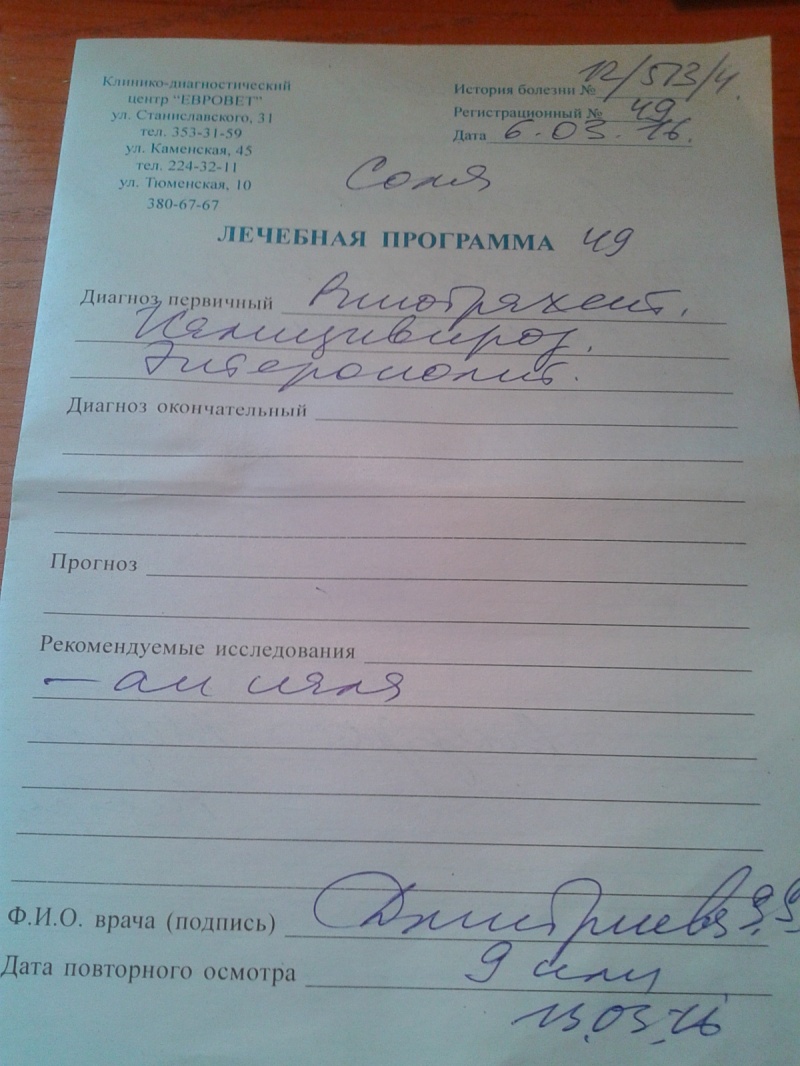 Клинико-диагностический
центр "ЕВРОВЕТ"
ул. Станиславского, 31
тел. 353-31-59
ул. Каменская, 45
тел. 224-32-11
ул. Тюменская, 10
380-67-67
История болезни № 12/573/4.
Регистрационный № 49
Дата 6.03.16.
Соня
ЛЕЧЕБНАЯ ПРОГРАММА 49
Диагноз первичный Ринотрахеит.
Калицивироз.
Энтероколит.
Диагноз окончательный
Прогноз
Рекомендуемые исследования
– ан кала
Ф.И.О. врача (подпись) Дмитриева
Дата повторного осмотра 9 или
13.03.16